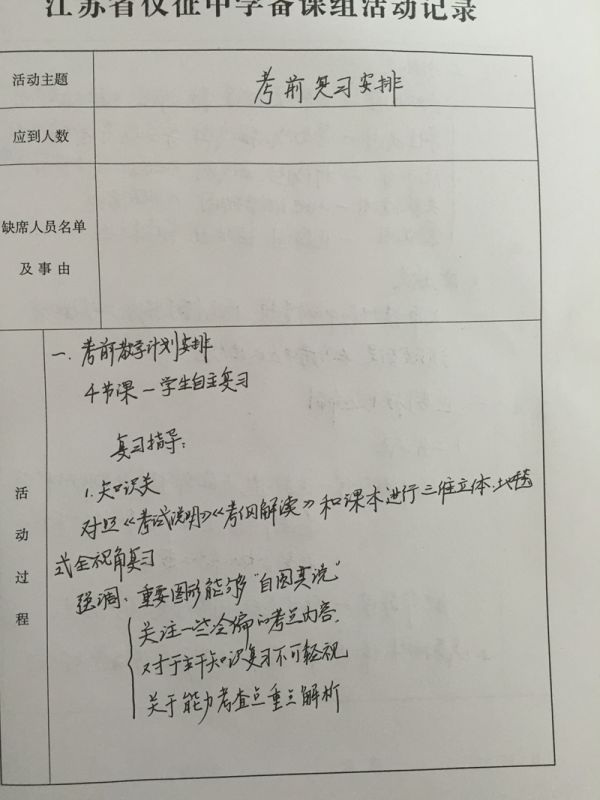 江苏省仪征中学备课组活动记录
活动主题 考前复习安排
应到人数
缺席人员名单
及事由
活动过程
一、考前教学计划安排
4节课—学生自主复习
复习指导:
1.知识关
对照《考试说明》《考纲解读》和课本进行三维立体、地毯
式全视角复习
强调:重要图形能够"自图其说"
关注一些冷偏的考点内容.
对于主干知识复习不可轻视
关于能力考查点重点解析